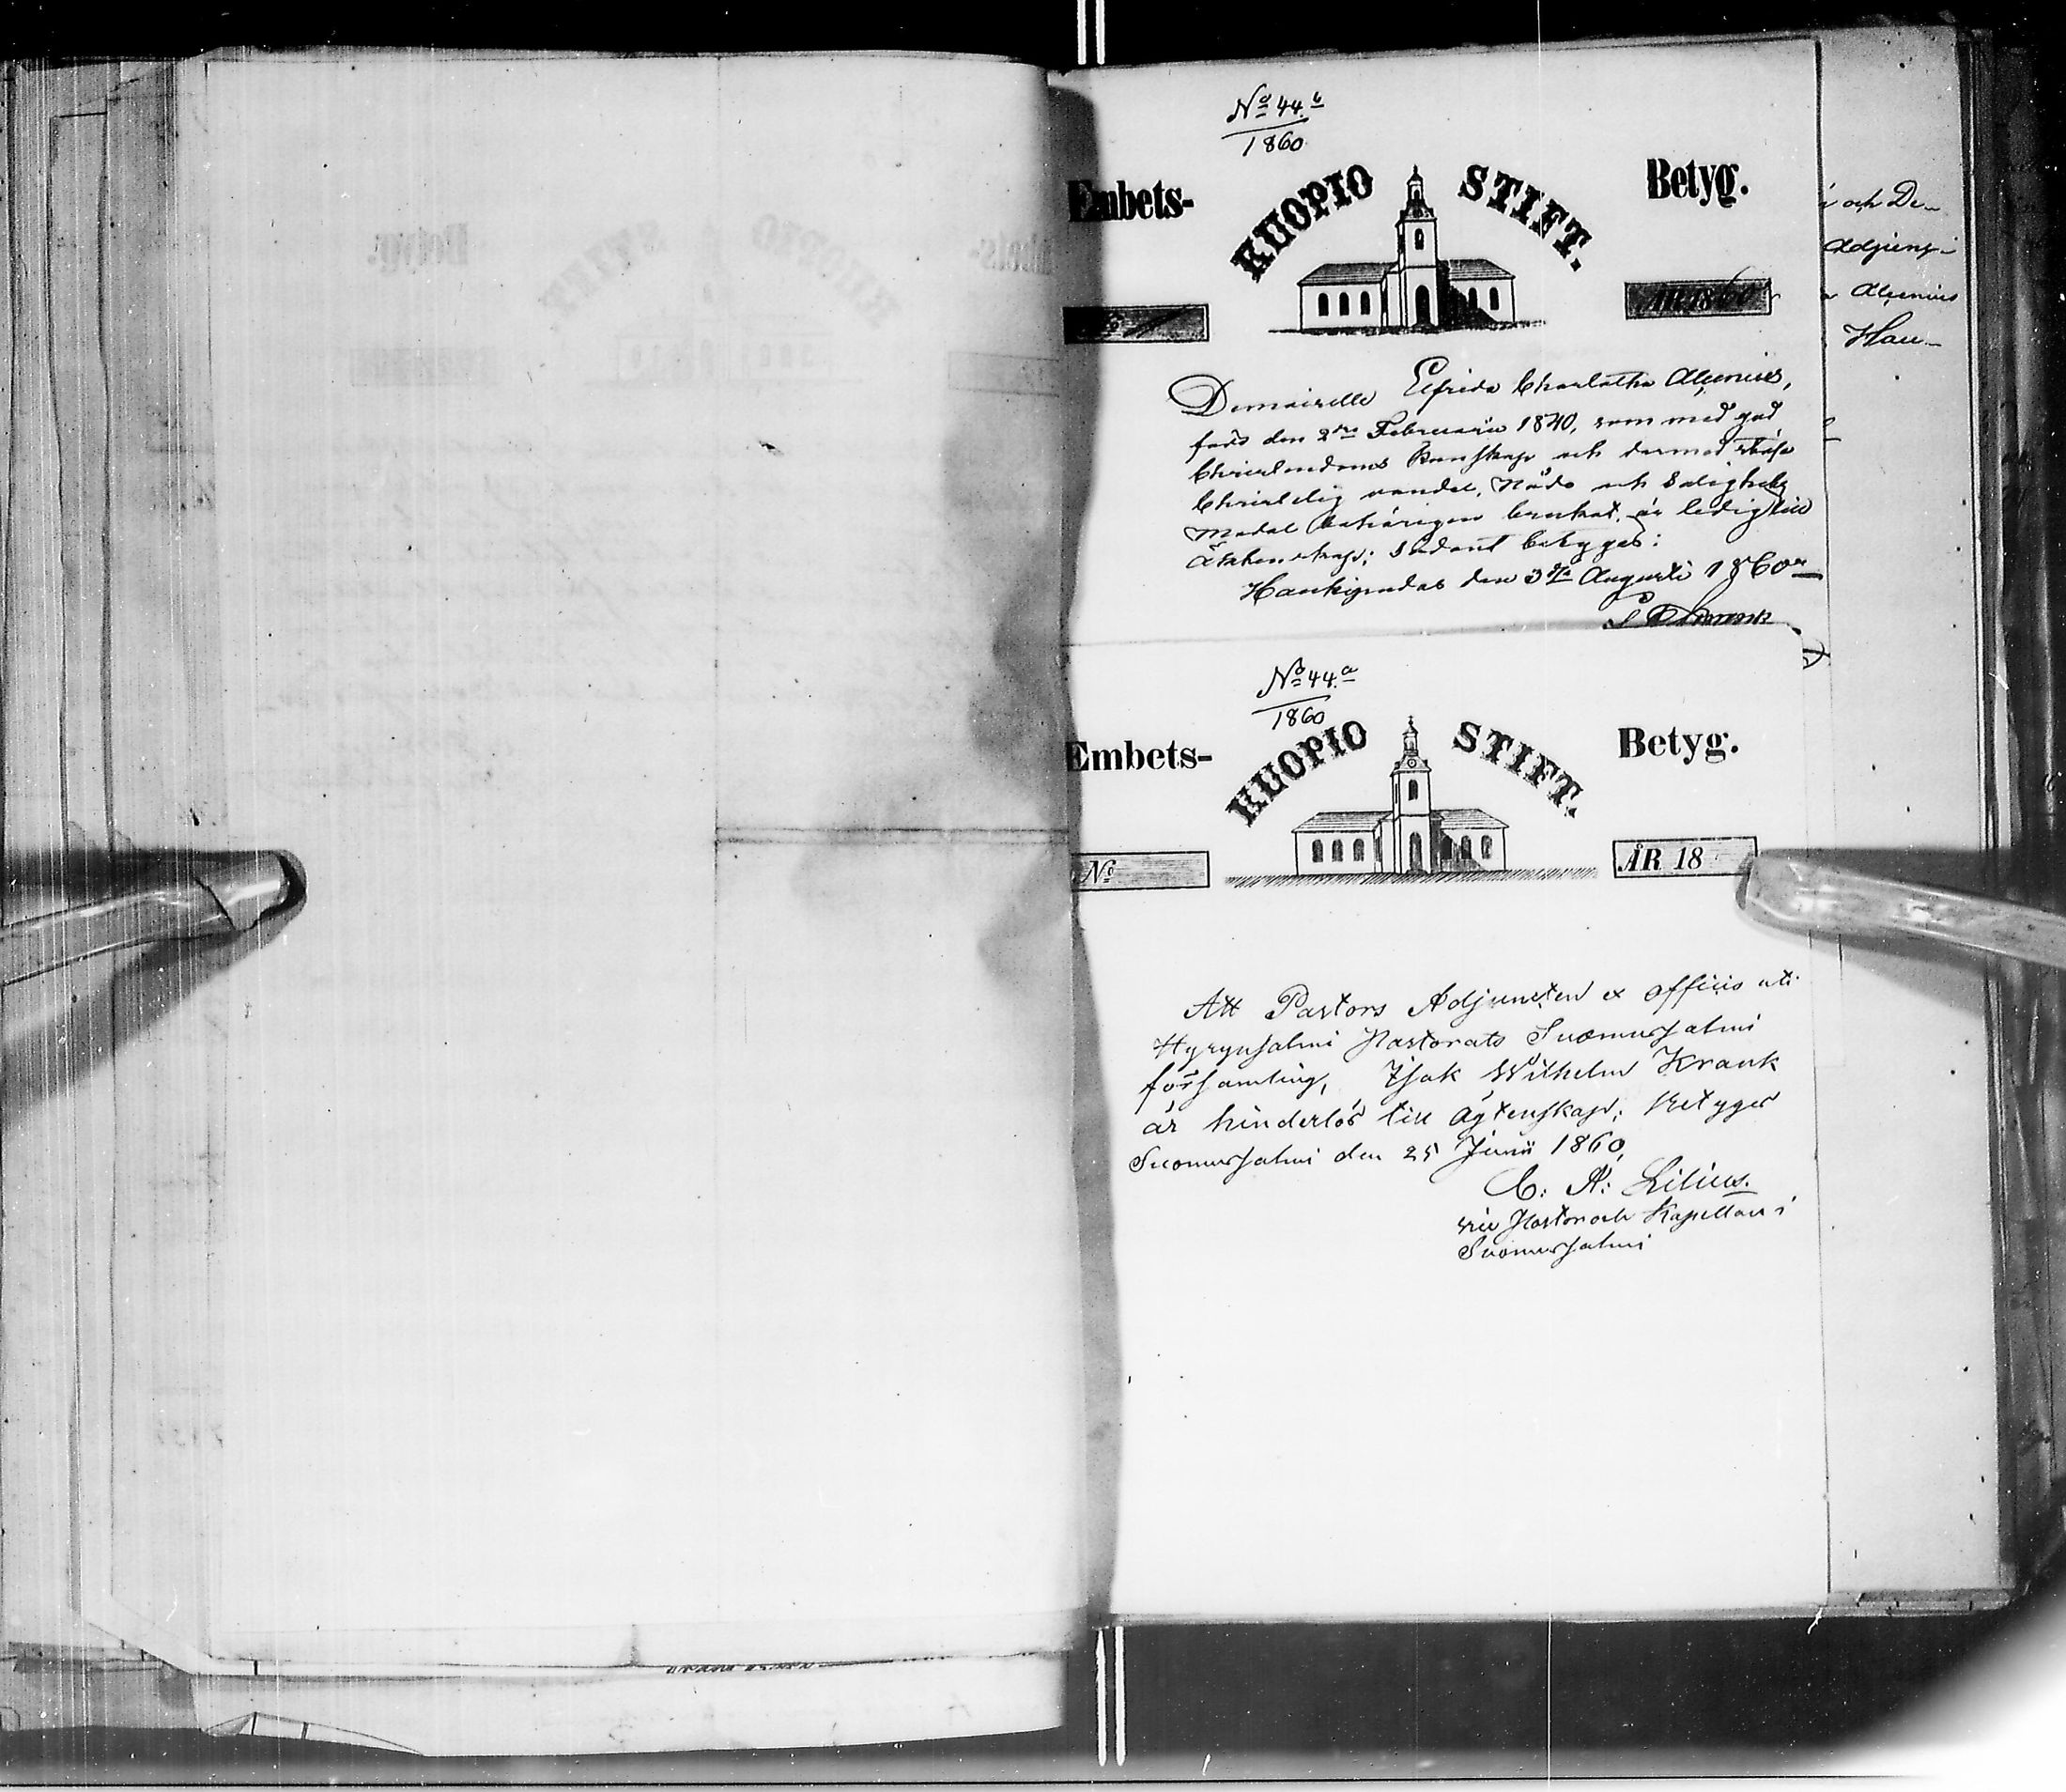 No 44.b
1860
Embets- KUOPIO STIFT. Betyg.
ÅR 1860
Demoiselle Elfrida Charlotha Alcenius,
född den 2dra Februarii 1840, som med god
Christendoms kunskap och dermed
Christelig vandel, Nåde och Salighets
Medel behörigen brukat, är ledig till
Äktenskap; sådant betygas:
Haukipudas den 3dje Augusti 1860
No 44.a
1860
Embets- KUOPIO STIFT. Betyg.
No ÅR 18
Att Pastors Adjuncten ex officio uti
Hyrynsalmi Pastorats Suomussalmi
församling, Isak Wilhelm Krank
är hinderlös till ägtenskap; betygas
Suomussalmi den 25 Junii 1860,
C. A: Lilius.
vice Pastor och Kapellan i
Suomussalmi
i och De-
Adjung-
Alcenius
Hau-